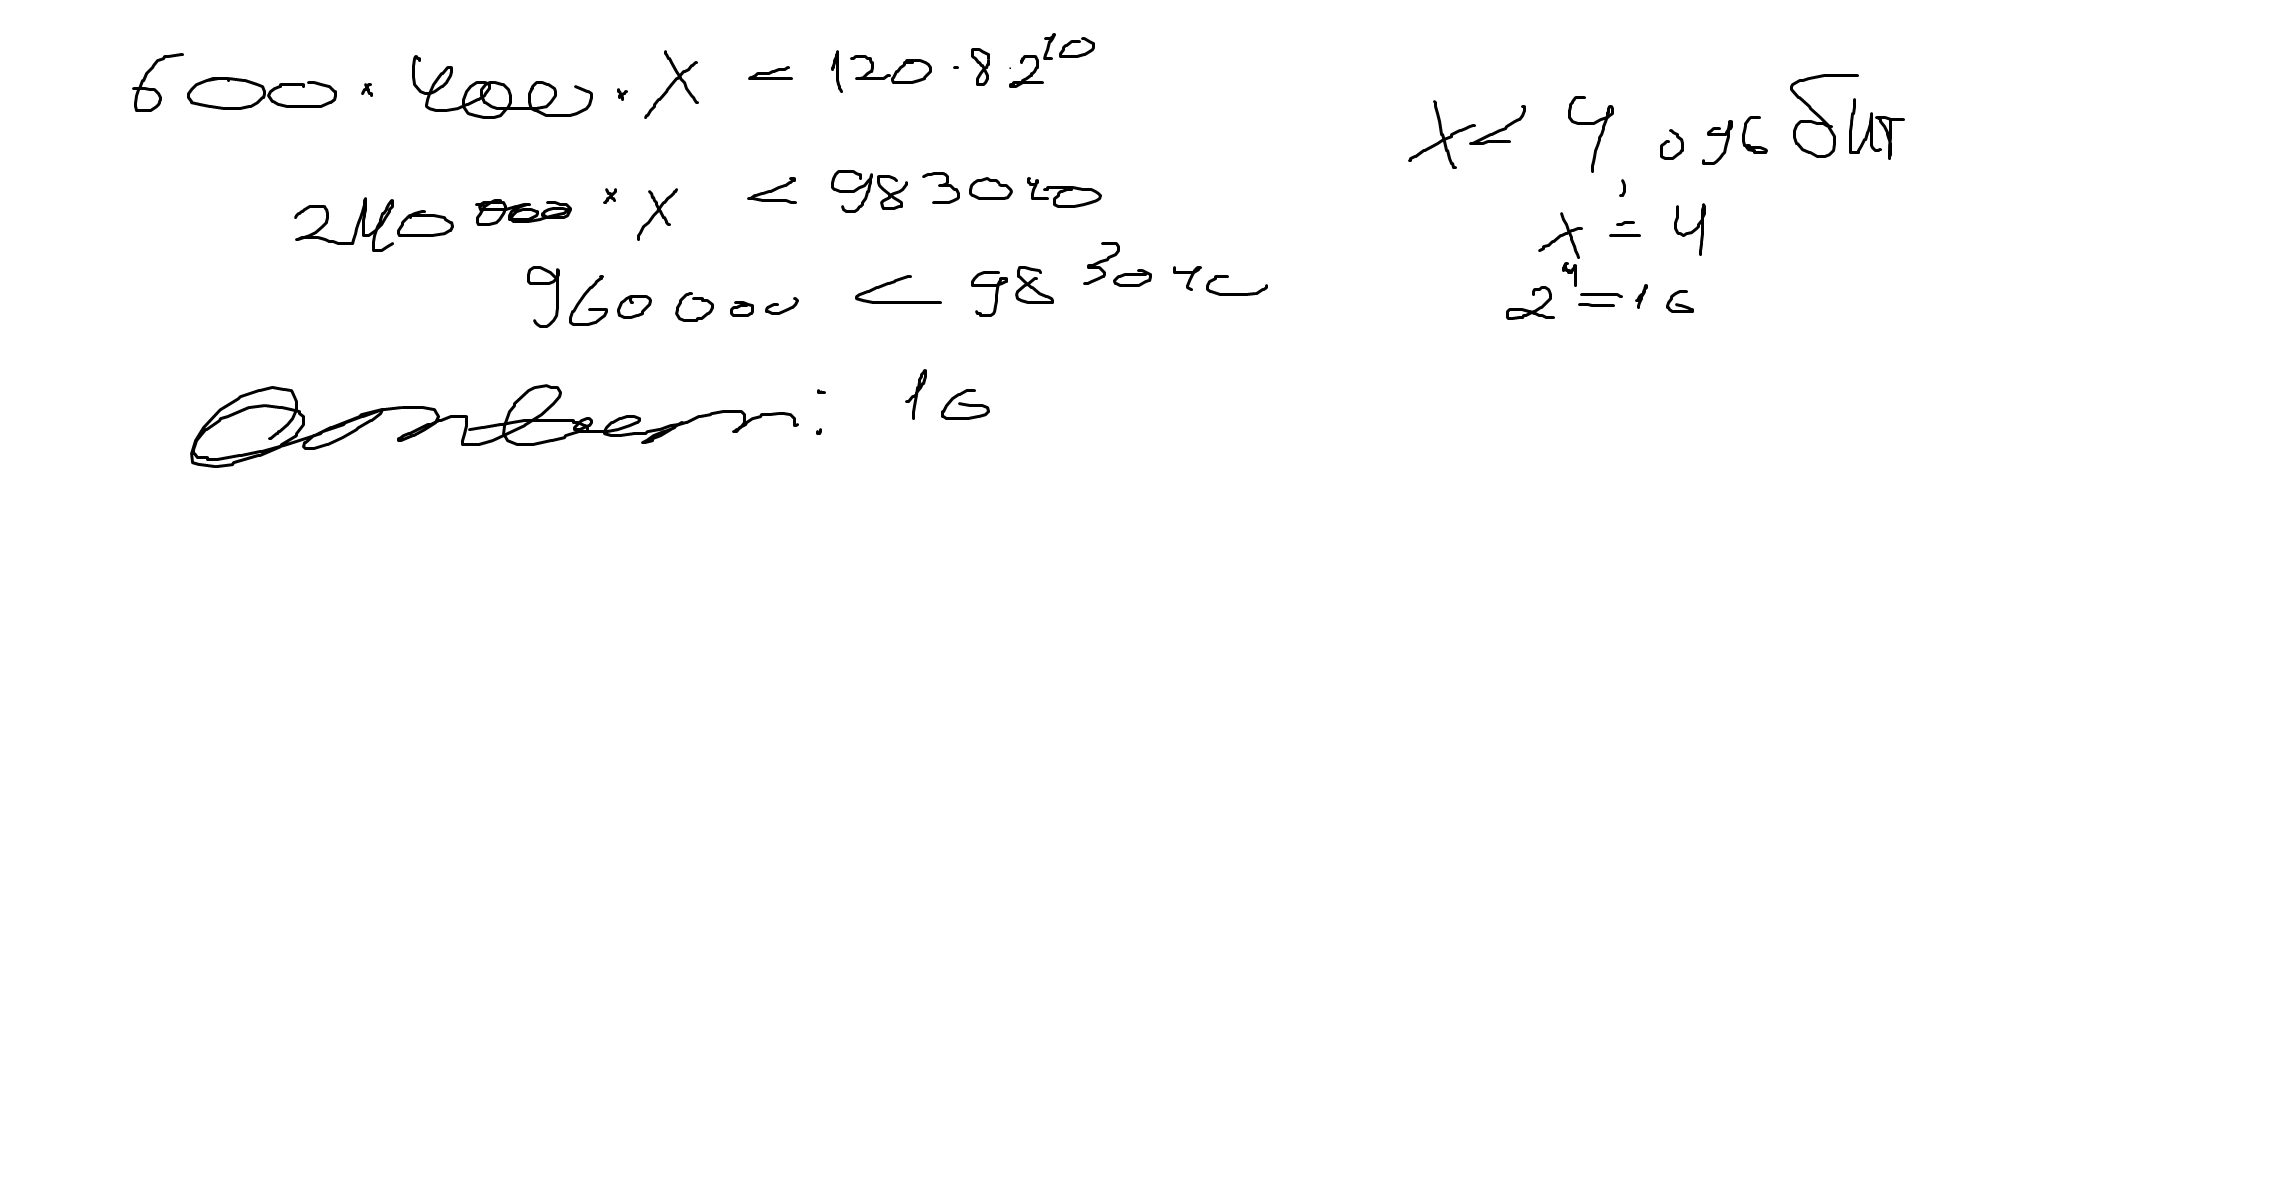 600 × 400 × X <= 120 · 8 · 2^10
240 000 × X < 983040
960 000 < 983040
Ответ: 16
X < 4,096 бит
x = 4
2^4 = 16